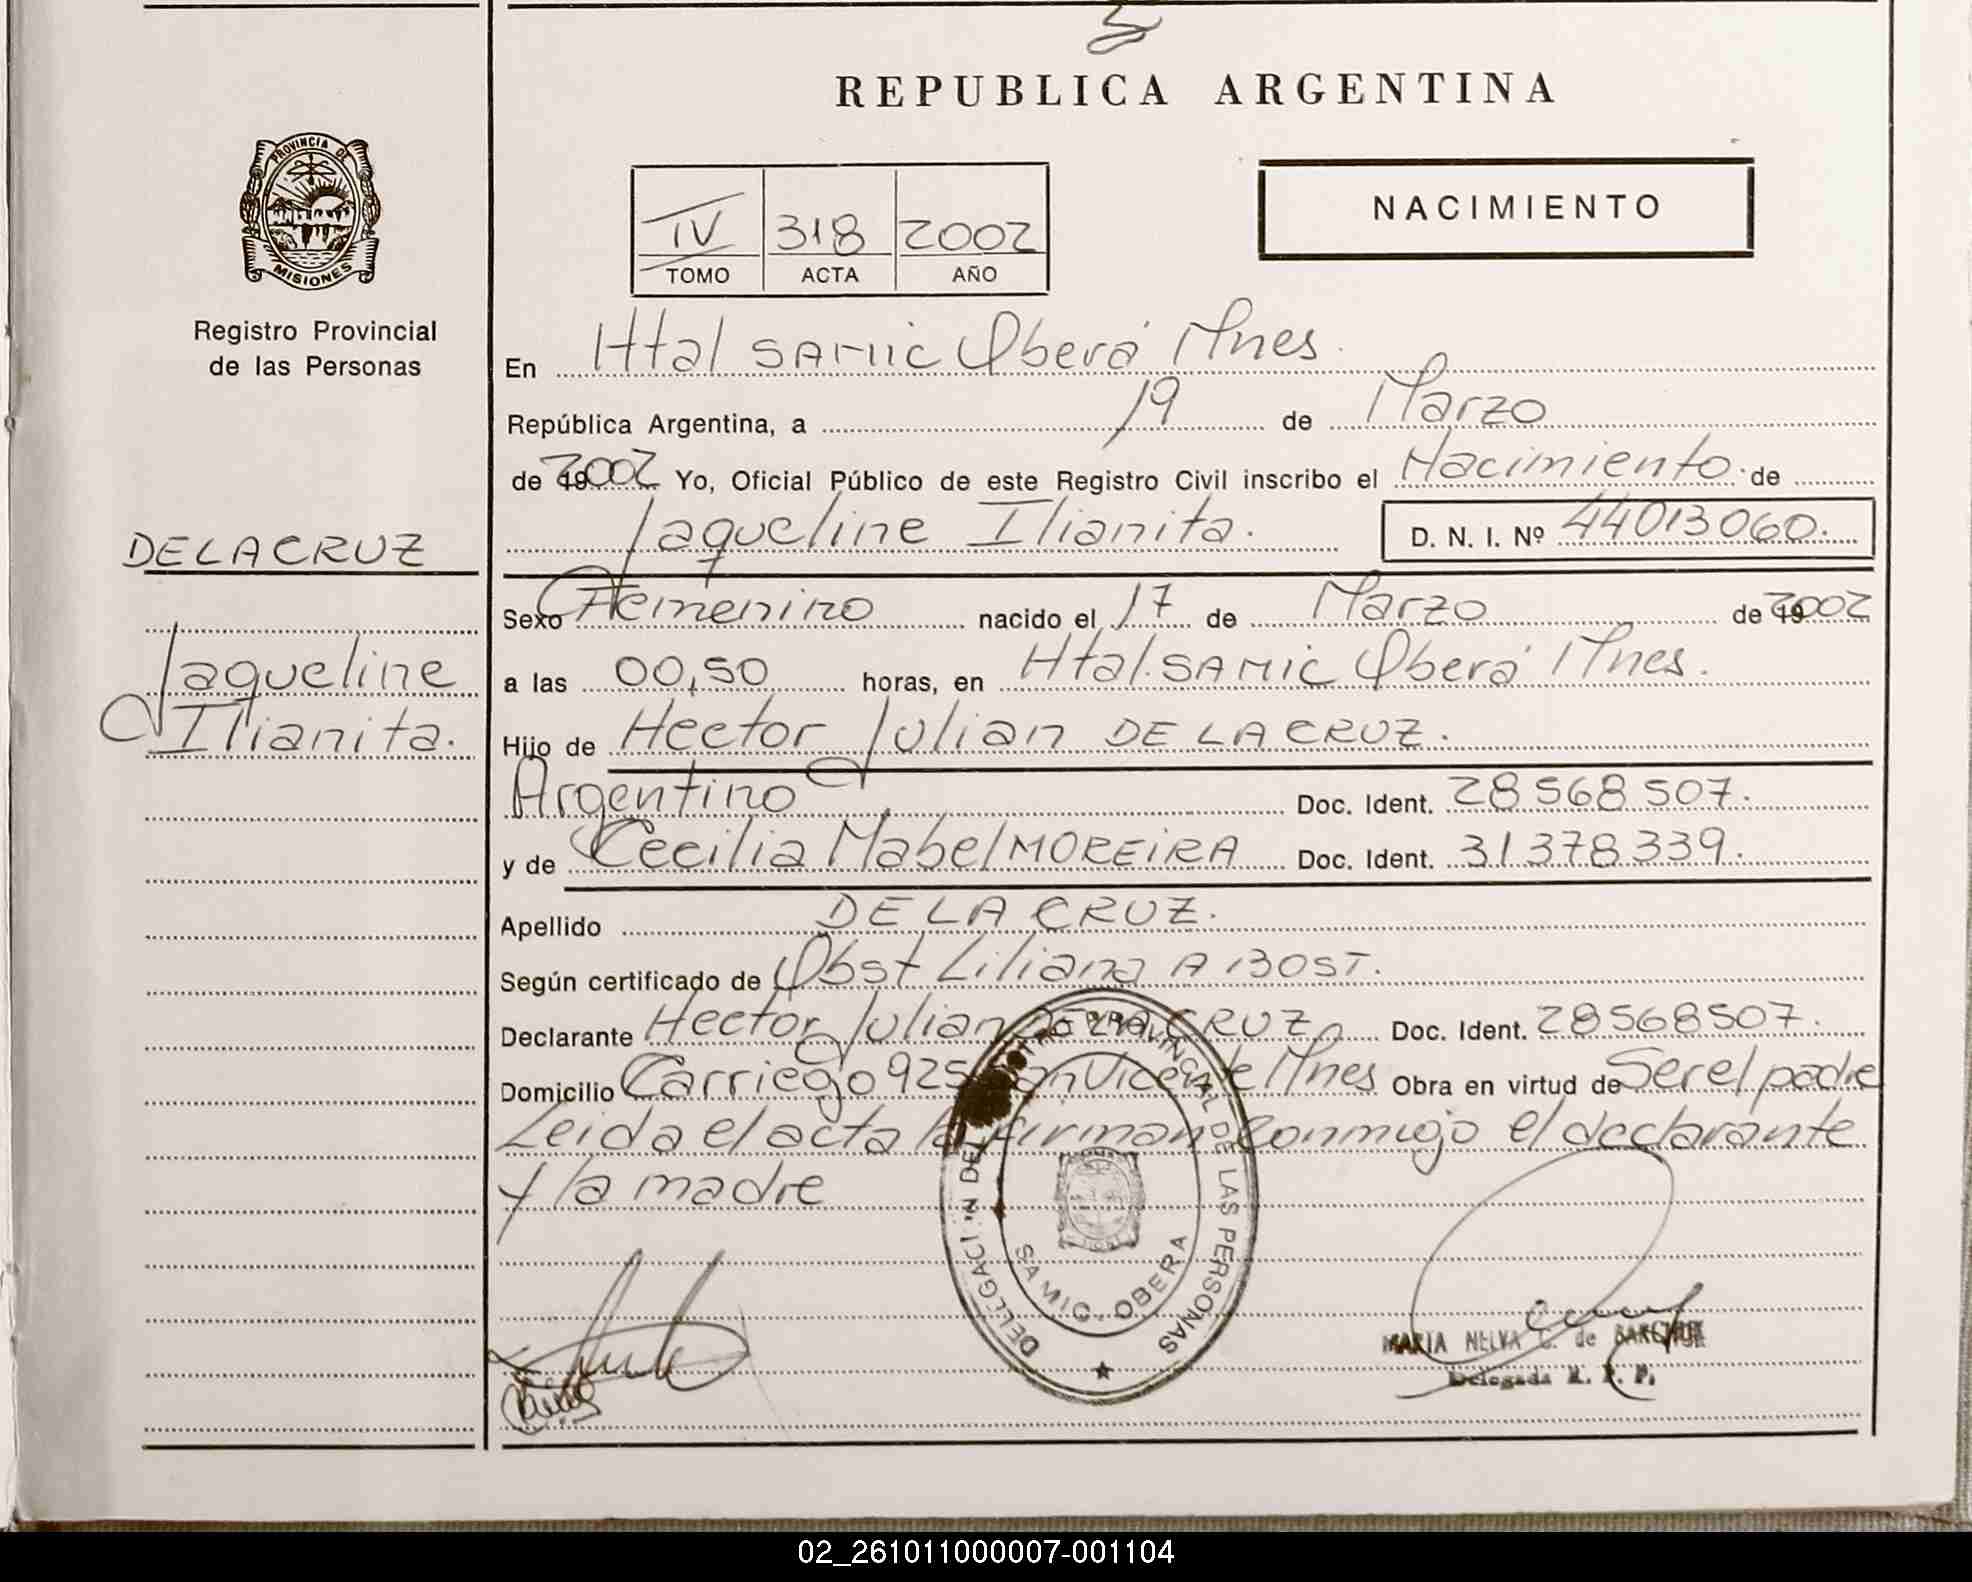 REPUBLICA ARGENTINA
PROVINCIA DE
MISIONES
Registro Provincial
de las Personas
DE LA CRUZ
Jaqueline
Ilianita.
IV 318 2002
TOMO ACTA AÑO
NACIMIENTO
En Htal SAMIC Oberá Mnes.
República Argentina, a 19 de Marzo
de 2002 Yo, Oficial Público de este Registro Civil inscribo el Nacimiento de
Jaqueline Ilianita. D. N. I. Nº 44013060.
Sexo Femenino nacido el 17 de Marzo de 2002
a las 00,50 horas, en Htal. SAMIC Oberá Mnes.
Hijo de Hector Julian DE LA CRUZ.
Argentino Doc. Ident. 28568507.
y de Cecilia Mabel MOREIRA Doc. Ident. 31378339.
Apellido DE LA CRUZ.
Según certificado de Obst Liliana A BOST.
Declarante Hector Julian DE LA CRUZ Doc. Ident. 28568507.
Domicilio Carriego 925 San Vicente Mnes Obra en virtud de Ser el padre
Leida el acta la firman Conmigo el declarante
y la madre
DELEGACION DEL REGISTRO PROVINCIAL DE LAS PERSONAS
SAMIC. OBERA
MARIA NELVA C. de
Delegada R. P. P.
02_261011000007-001104